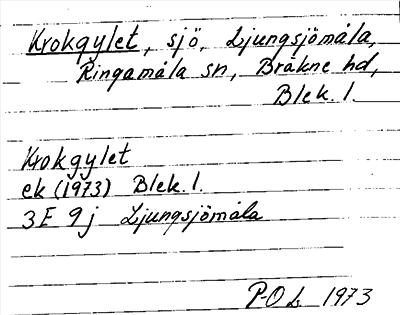 Krokgylet, sjö, Ljungsjömåla,
Ringamåla sn, Bräkne hd,
Blek. l.
Krokgylet
ek (1973) Blek. l.
3E 9j Ljungsjömåla
P-O L 1973